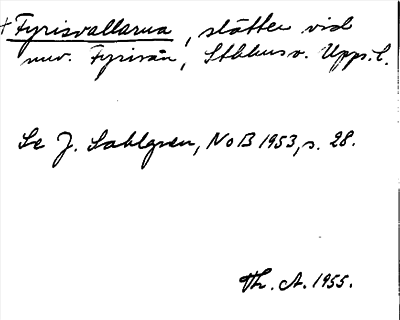 + Fyrisvallarna, slätten vid
nuv. Fyrisån, Stbhus o. Upps. l.
Se J. Sahlgren, NoB 1953, s. 28.
Th. A. 1955.